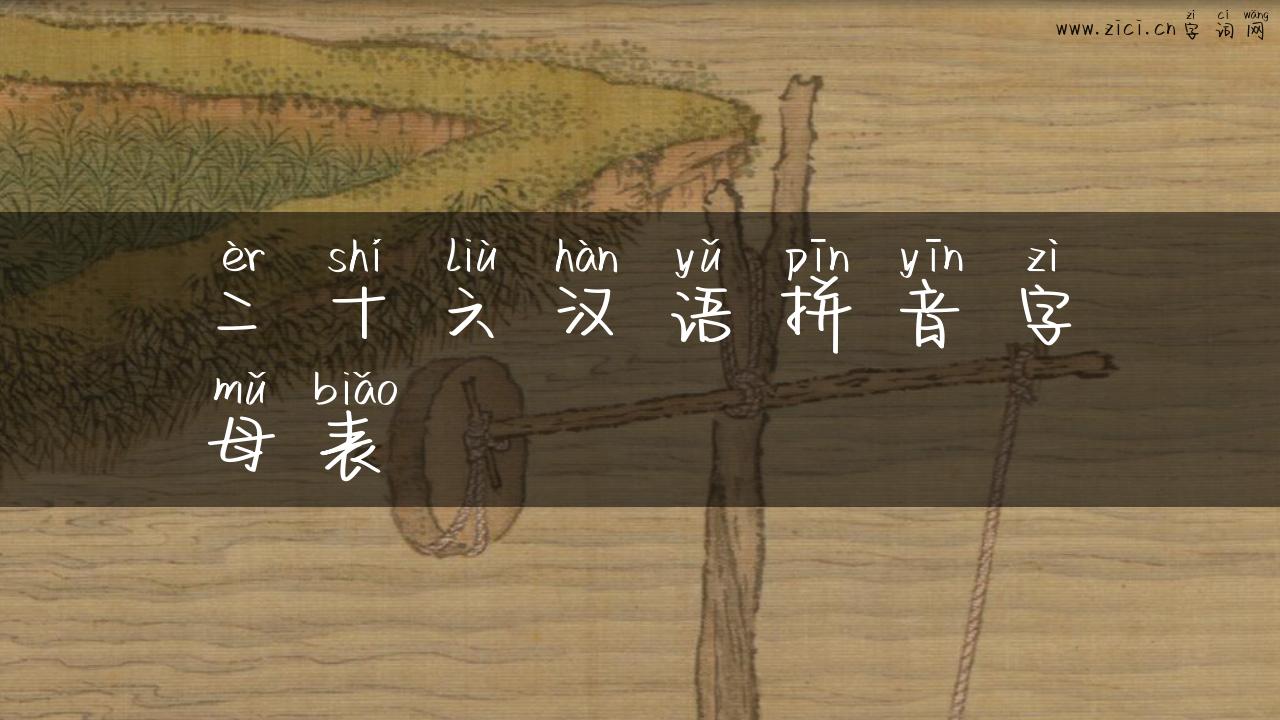 zì cí wǎng
www.zici.cn 字词网
èr shí liù hàn yǔ pīn yīn zì
二十六汉语拼音字
mǔ biǎo
母表